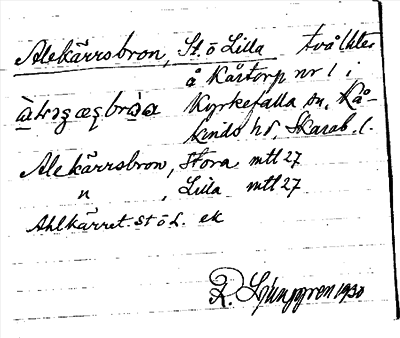 Alekärrsbron, St. o Lilla två lkter
å Kåstorp nr 1 i
Kyrkefalla sn, Kå-
kinds hd, Skarab. l.
Alekärrsbron, Stora mtl 27
" , Lilla mtl 27
Ahlkärret. St o L. ek
R. Ljunggren 1930